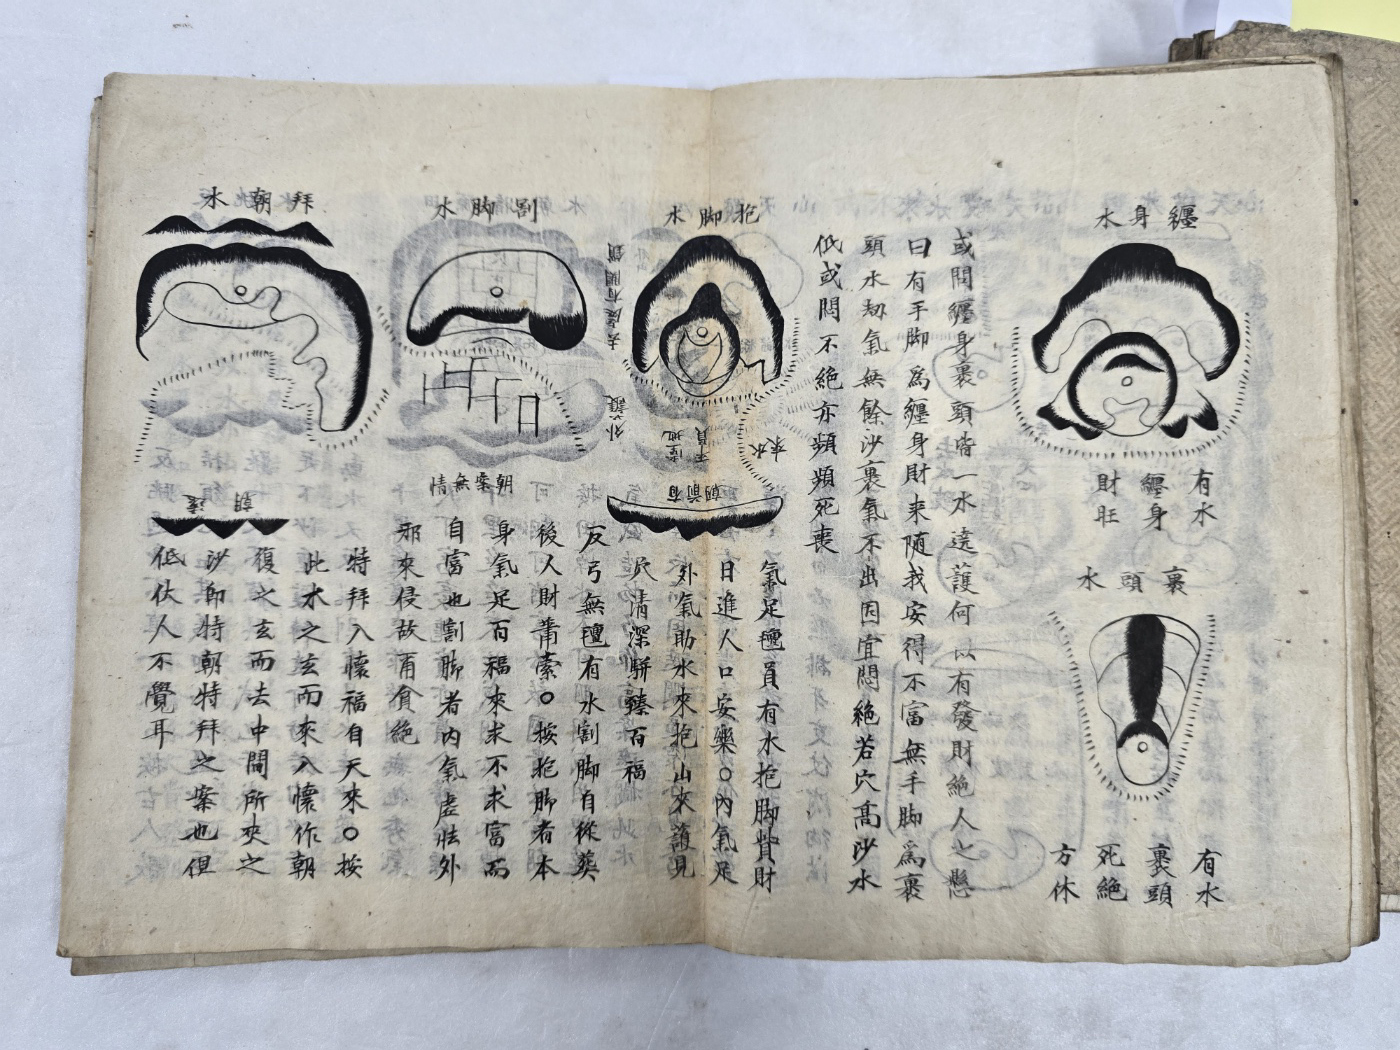 纏身水
有水
纏身
財旺
裹頭水
有水
裹頭
死絶
方休
或問纏身裹頭皆一水遶護何以有發財絶人之懸
曰有手脚爲纏身財来随我安得不富無手脚爲裹
頭水刼氣無餘沙裹氣不出因宜悶絶若穴髙沙水
低或悶不絶亦頻頻死喪
抱脚水
來水
平員
有前朝
氣足氊員有水抱脚貲財
日進人口安樂○內氣足
外氣助水來抱山來誼見
穴清深駢臻百福
割脚水
朝案無情
反弓無氊有水割脚自從葵
後人財蕭索○按抱脚者本
身氣足百福來求不求富而
自富也割脚者内氣虗怯外
邪來侵故甭貪絶
拜朝水
朝遠
特拜入懷福自天來○按
此水之玄而來入懷作朝
復之玄而去中間所夾之
沙即特朝特拜之案也但
低伏人不覺耳